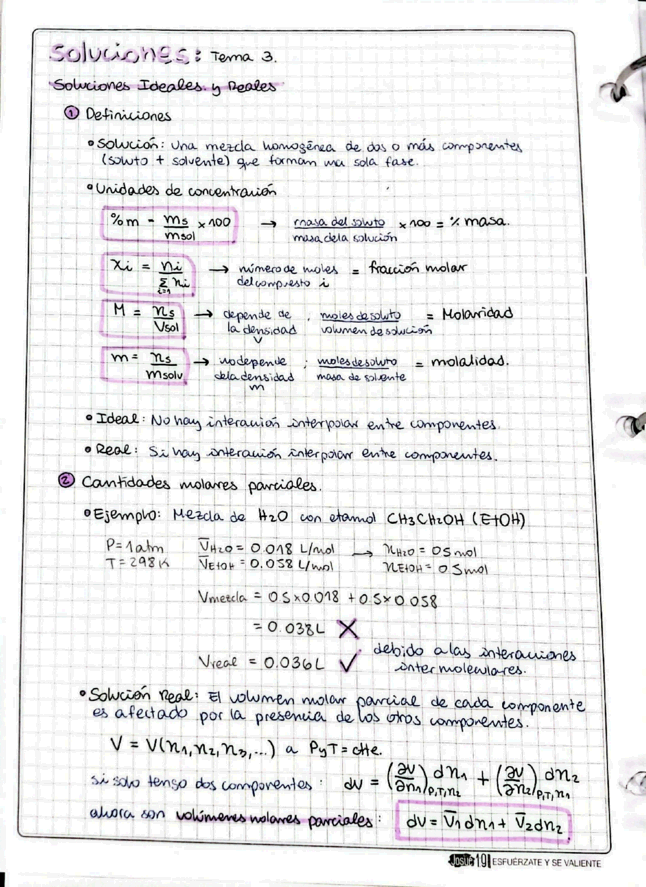 Soluciones: Tema 3.
Soluciones Ideales y Reales
① Definiciones
• Solución: Una mezcla homogénea de dos o más componentes
(soluto + solvente) que forman una sola fase.
• Unidades de concentración
%m = ms/msol x 100 → masa del soluto/masa de la solución x 100 = % masa.
Xi = ni/Σ ni i=1 → número de moles del compuesto i = fracción molar
M = ns/Vsol → depende de la densidad V ; moles de soluto/volumen de solución = Molaridad
m = ns/msolv → no depende de la densidad m ; moles de soluto/masa de solvente = molalidad.
• Ideal: No hay interación interpolar entre componentes.
• Real: Si hay interación interpolar entre componentes.
② Cantidades molares parciales.
• Ejemplo: Mezcla de H2O con etanol CH3CH2OH (EtOH)
P = 1 atm V̅H2O = 0.018 L/mol → nH2O = 0.5 mol
T = 298 K V̅EtOH = 0.058 L/mol nEtOH = 0.5 mol
Vmezcla = 0.5 x 0.018 + 0.5 x 0.058
= 0.038 L ✗
Vreal = 0.036 L ✓ debido a las interaciones
intermoleculares.
• Solución Real: El volumen molar parcial de cada componente
es afectado por la presencia de los otros componentes.
V = V(n1, n2, n3, ...) a P y T = ctte.
si solo tengo dos componentes: dV = (∂V/∂n1)P,T,n2 dn1 + (∂V/∂n2)P,T,n1 dn2
ahora son volúmenes molares parciales: dV = V̅1 dn1 + V̅2 dn2
Josué 1:9 | ESFUÉRZATE Y SE VALIENTE